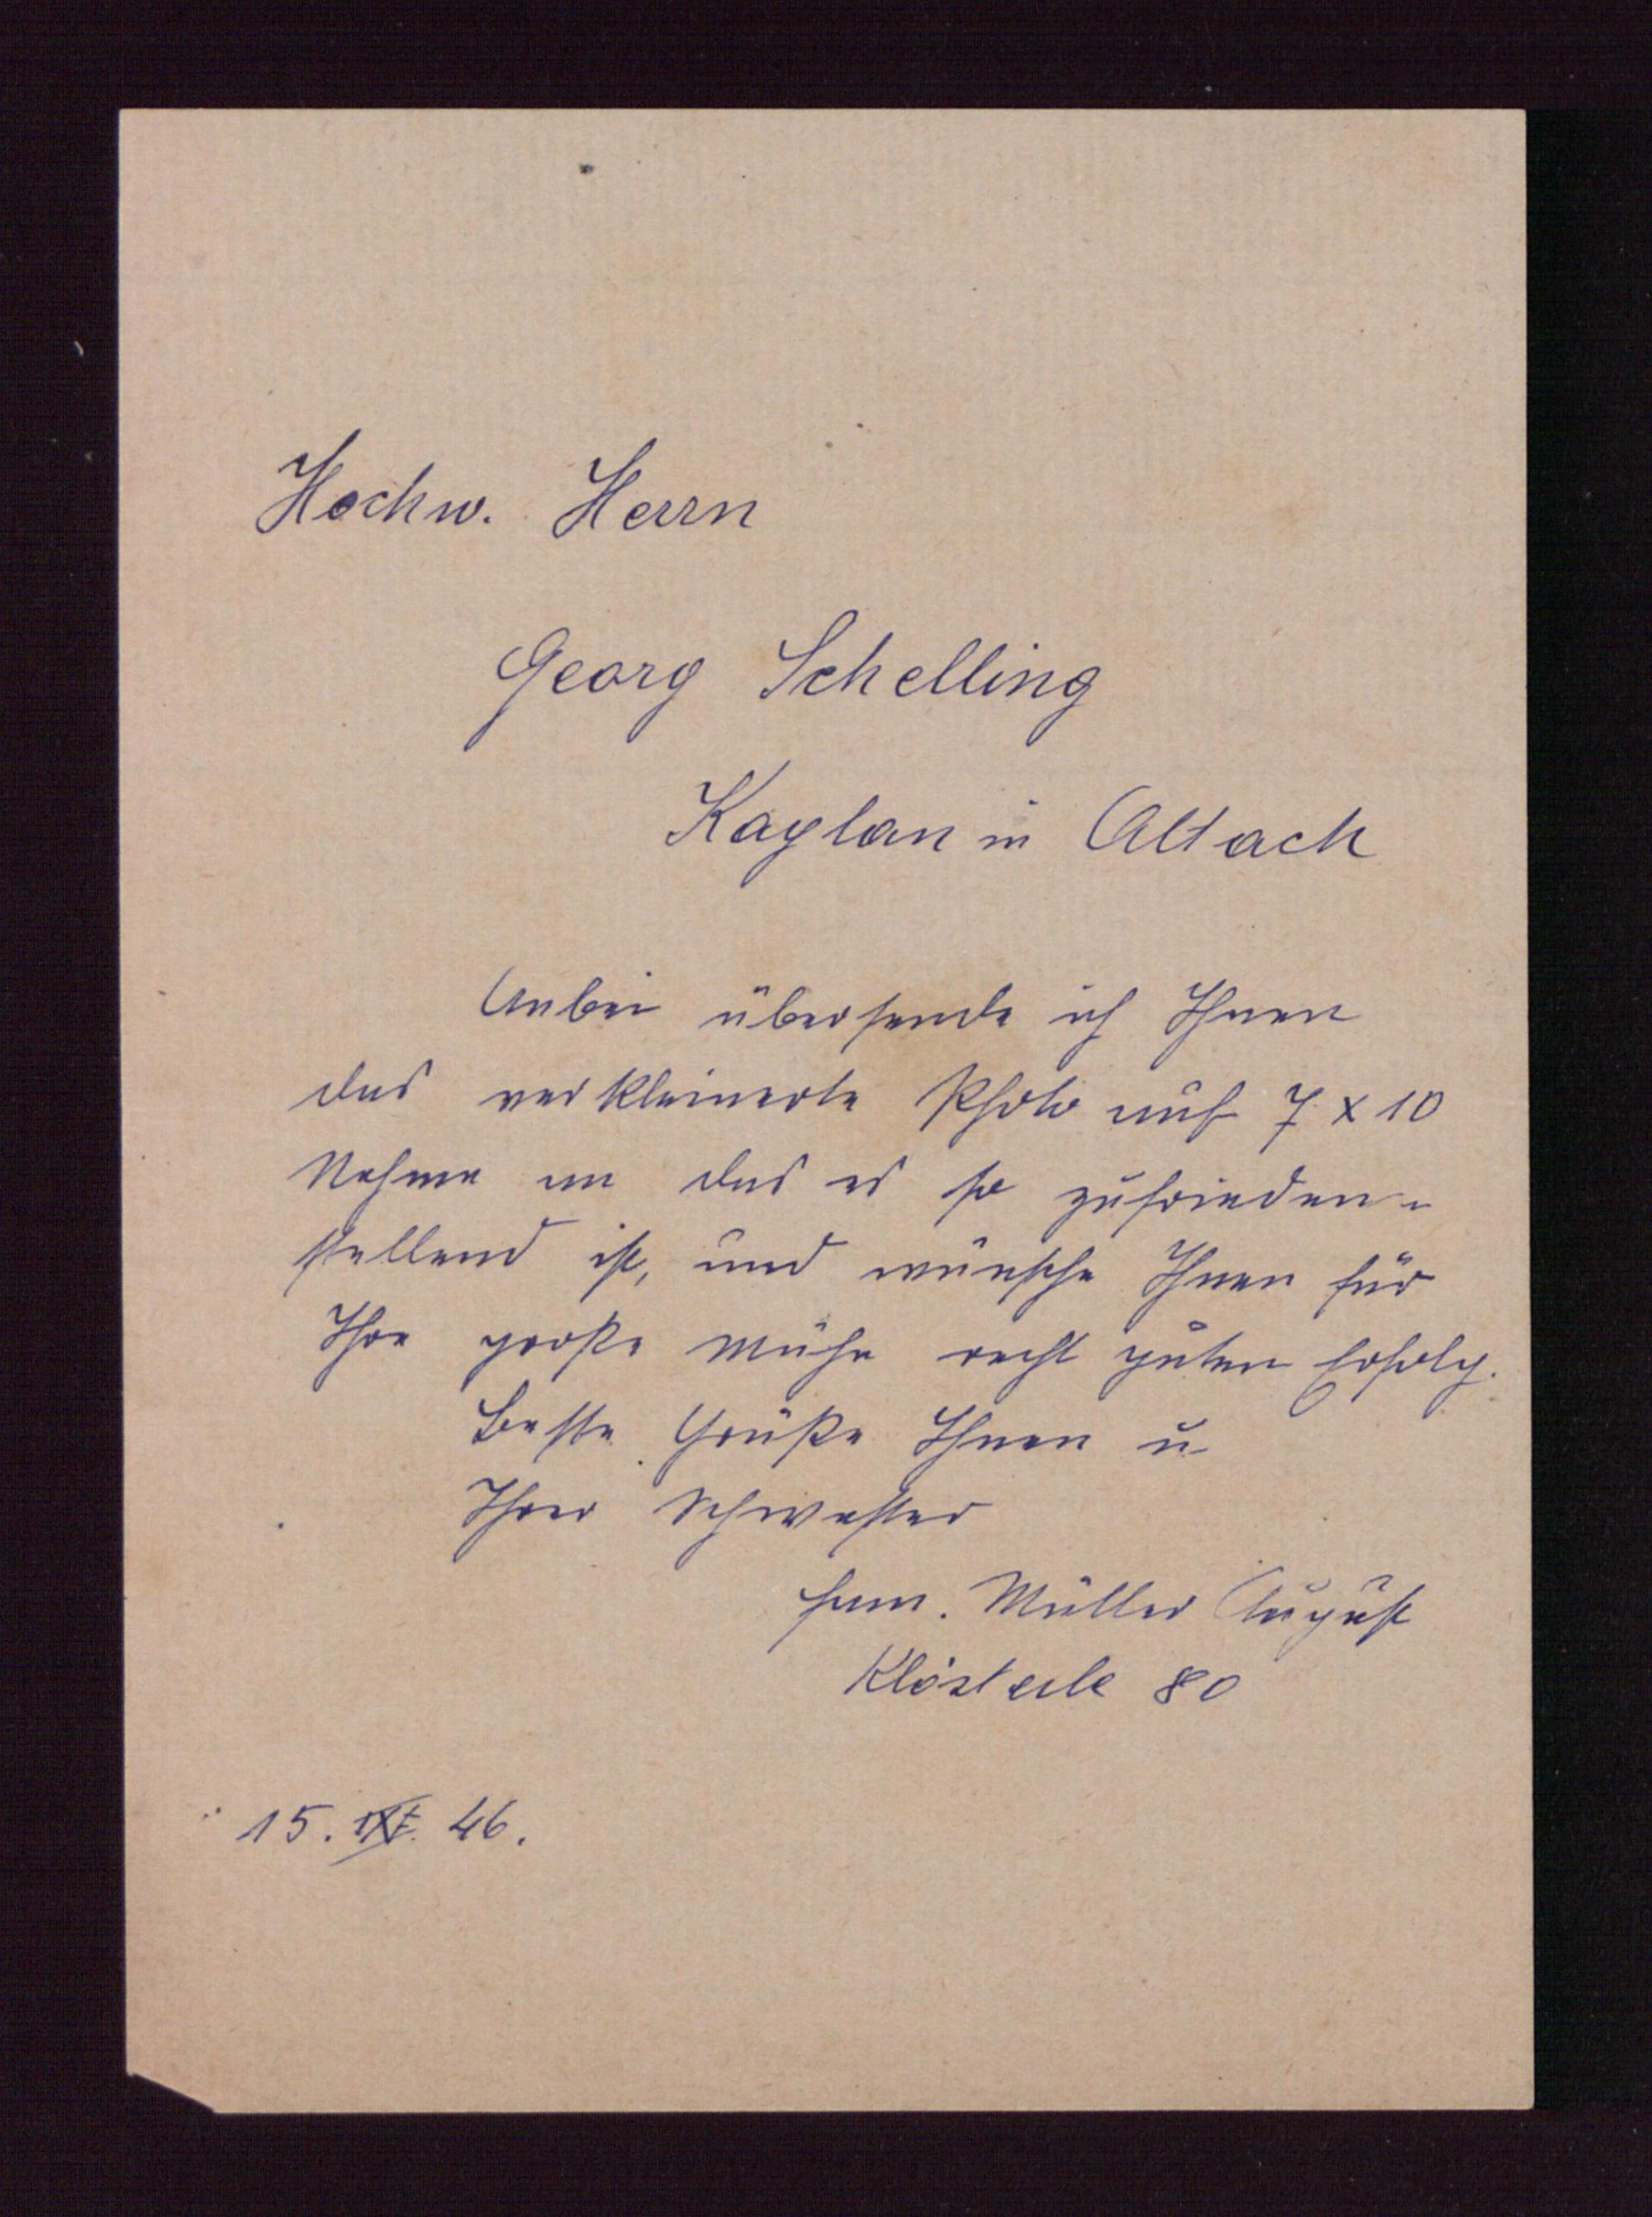 Hochw. Herrn
Georg Schelling
Kaplan in Altach
Anbei übersende ich Ihnen
das verkleinerte Photo auf 7 x 10
Nehme an das es so zufrieden-
stellend ist, und wünsche Ihnen für
Ihre große Mühe recht guten Erfolg.
Beste Grüße Ihnen u
Ihrer Schwester
Fam. Müller August
Klösterle 80
15. 46.